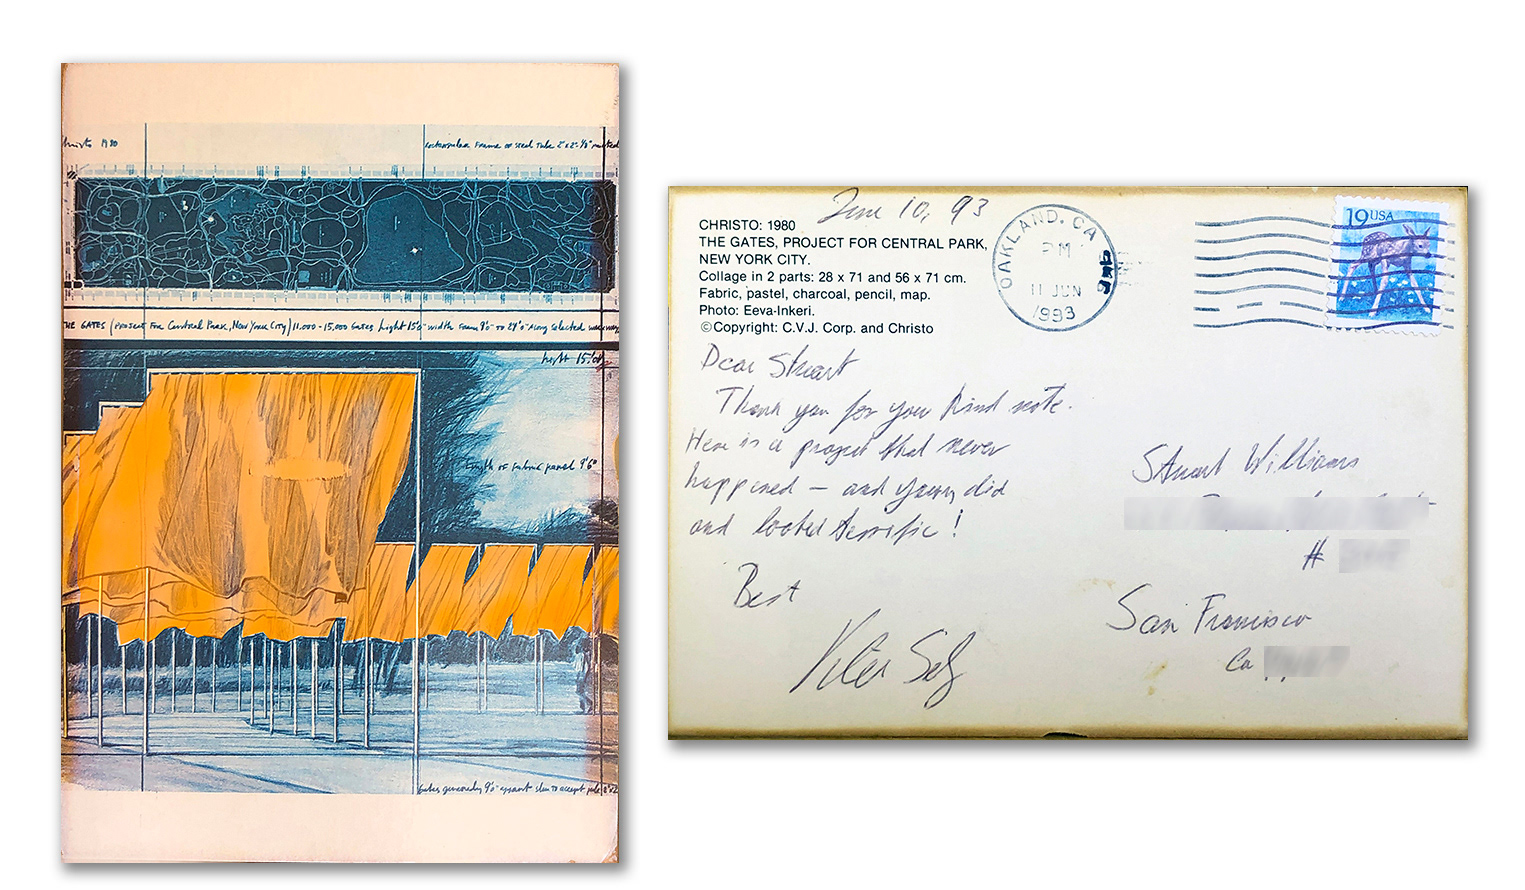 Christo 1980
rectangular Frame or steel Tube 2"x2"-1/8"
THE GATES (project For Central Park, New York City) 11.000-15.000 Gates, hight 15'0" width From 9'0" to 29'0" Along selected
hight 15'0"
Length of Fabric panel 9'6"
Gates generally 9'0" appart
June 10, 93
CHRISTO: 1980
THE GATES, PROJECT FOR CENTRAL PARK,
NEW YORK CITY.
Collage in 2 parts: 28 x 71 and 56 x 71 cm.
Fabric, pastel, charcoal, pencil, map.
Photo: Eeva-Inkeri.
©Copyright: C.V.J. Corp. and Christo
OAKLAND, CA
PM
11 JUN
1993
19 USA
Dear Stuart
Thank you for your kind note.
Here is a project that never
happened – and yours did
and looked terrific!
Best
Peter Selz
Stuart Williams
#
San Francisco
Ca